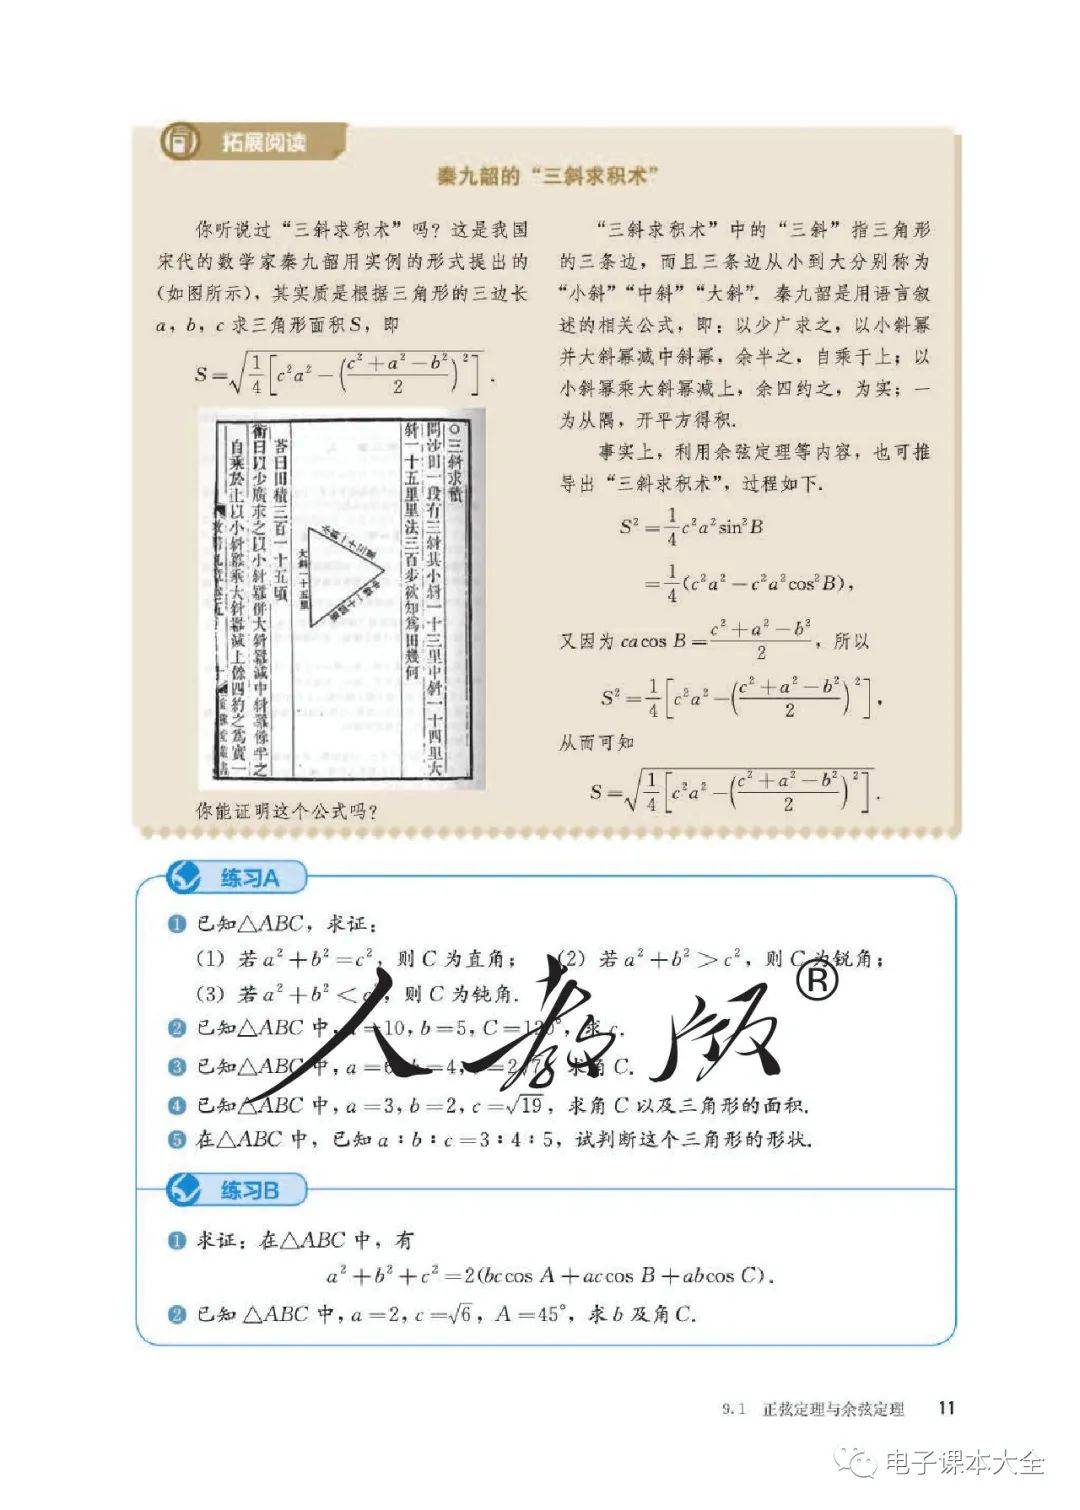 拓展阅读
秦九韶的“三斜求积术”
你听说过“三斜求积术”吗？这是我国
宋代的数学家秦九韶用实例的形式提出的
（如图所示），其实质是根据三角形的三边长
a，b，c 求三角形面积S，即
S=√(1/4[c²a²-((c²+a²-b²)/2)²]).
〇三斜求积
問沙田一段有三斜其小斜一十三里中斜一十四里大
斜一十五里里法三百步欲知為田幾何
答曰田積三百一十五頃
術曰以少廣求之以小斜冪併大斜冪減中斜冪餘半之
自乘於上以小斜冪乘大斜冪減上餘四約之為實一
小斜一十三里
中斜一十四里
大斜一十五里
你能证明这个公式吗？
“三斜求积术”中的“三斜”指三角形
的三条边，而且三条边从小到大分别称为
“小斜”“中斜”“大斜”. 秦九韶是用语言叙
述的相关公式，即：以少广求之，以小斜幂
并大斜幂减中斜幂，余半之，自乘于上；以
小斜幂乘大斜幂减上，余四约之，为实；一
为从隅，开平方得积.
事实上，利用余弦定理等内容，也可推
导出“三斜求积术”，过程如下.
S²=1/4c²a²sin²B
=1/4(c²a²-c²a²cos²B)，
又因为 ca cos B=(c²+a²-b²)/2，所以
S²=1/4[c²a²-((c²+a²-b²)/2)²]，
从而可知
S=√(1/4[c²a²-((c²+a²-b²)/2)²]).
练习A
1 已知△ABC，求证：
（1）若 a²+b²=c²，则 C 为直角； （2）若 a²+b²>c²，则 C 为锐角；
（3）若 a²+b²<c²，则 C 为钝角.
2 已知△ABC 中，a=10，b=5，C=120°，求 c.
3 已知△ABC 中，a=6，b=4，c=2√7，求角 C.
4 已知△ABC 中，a=3，b=2，c=√19，求角 C 以及三角形的面积.
5 在△ABC 中，已知 a∶b∶c=3∶4∶5，试判断这个三角形的形状.
人教版®
练习B
1 求证：在△ABC 中，有
a²+b²+c²=2(bccos A+accos B+abcos C).
2 已知 △ABC 中，a=2，c=√6，A=45°，求 b 及角 C.
9.1 正弦定理与余弦定理 11
电子课本大全